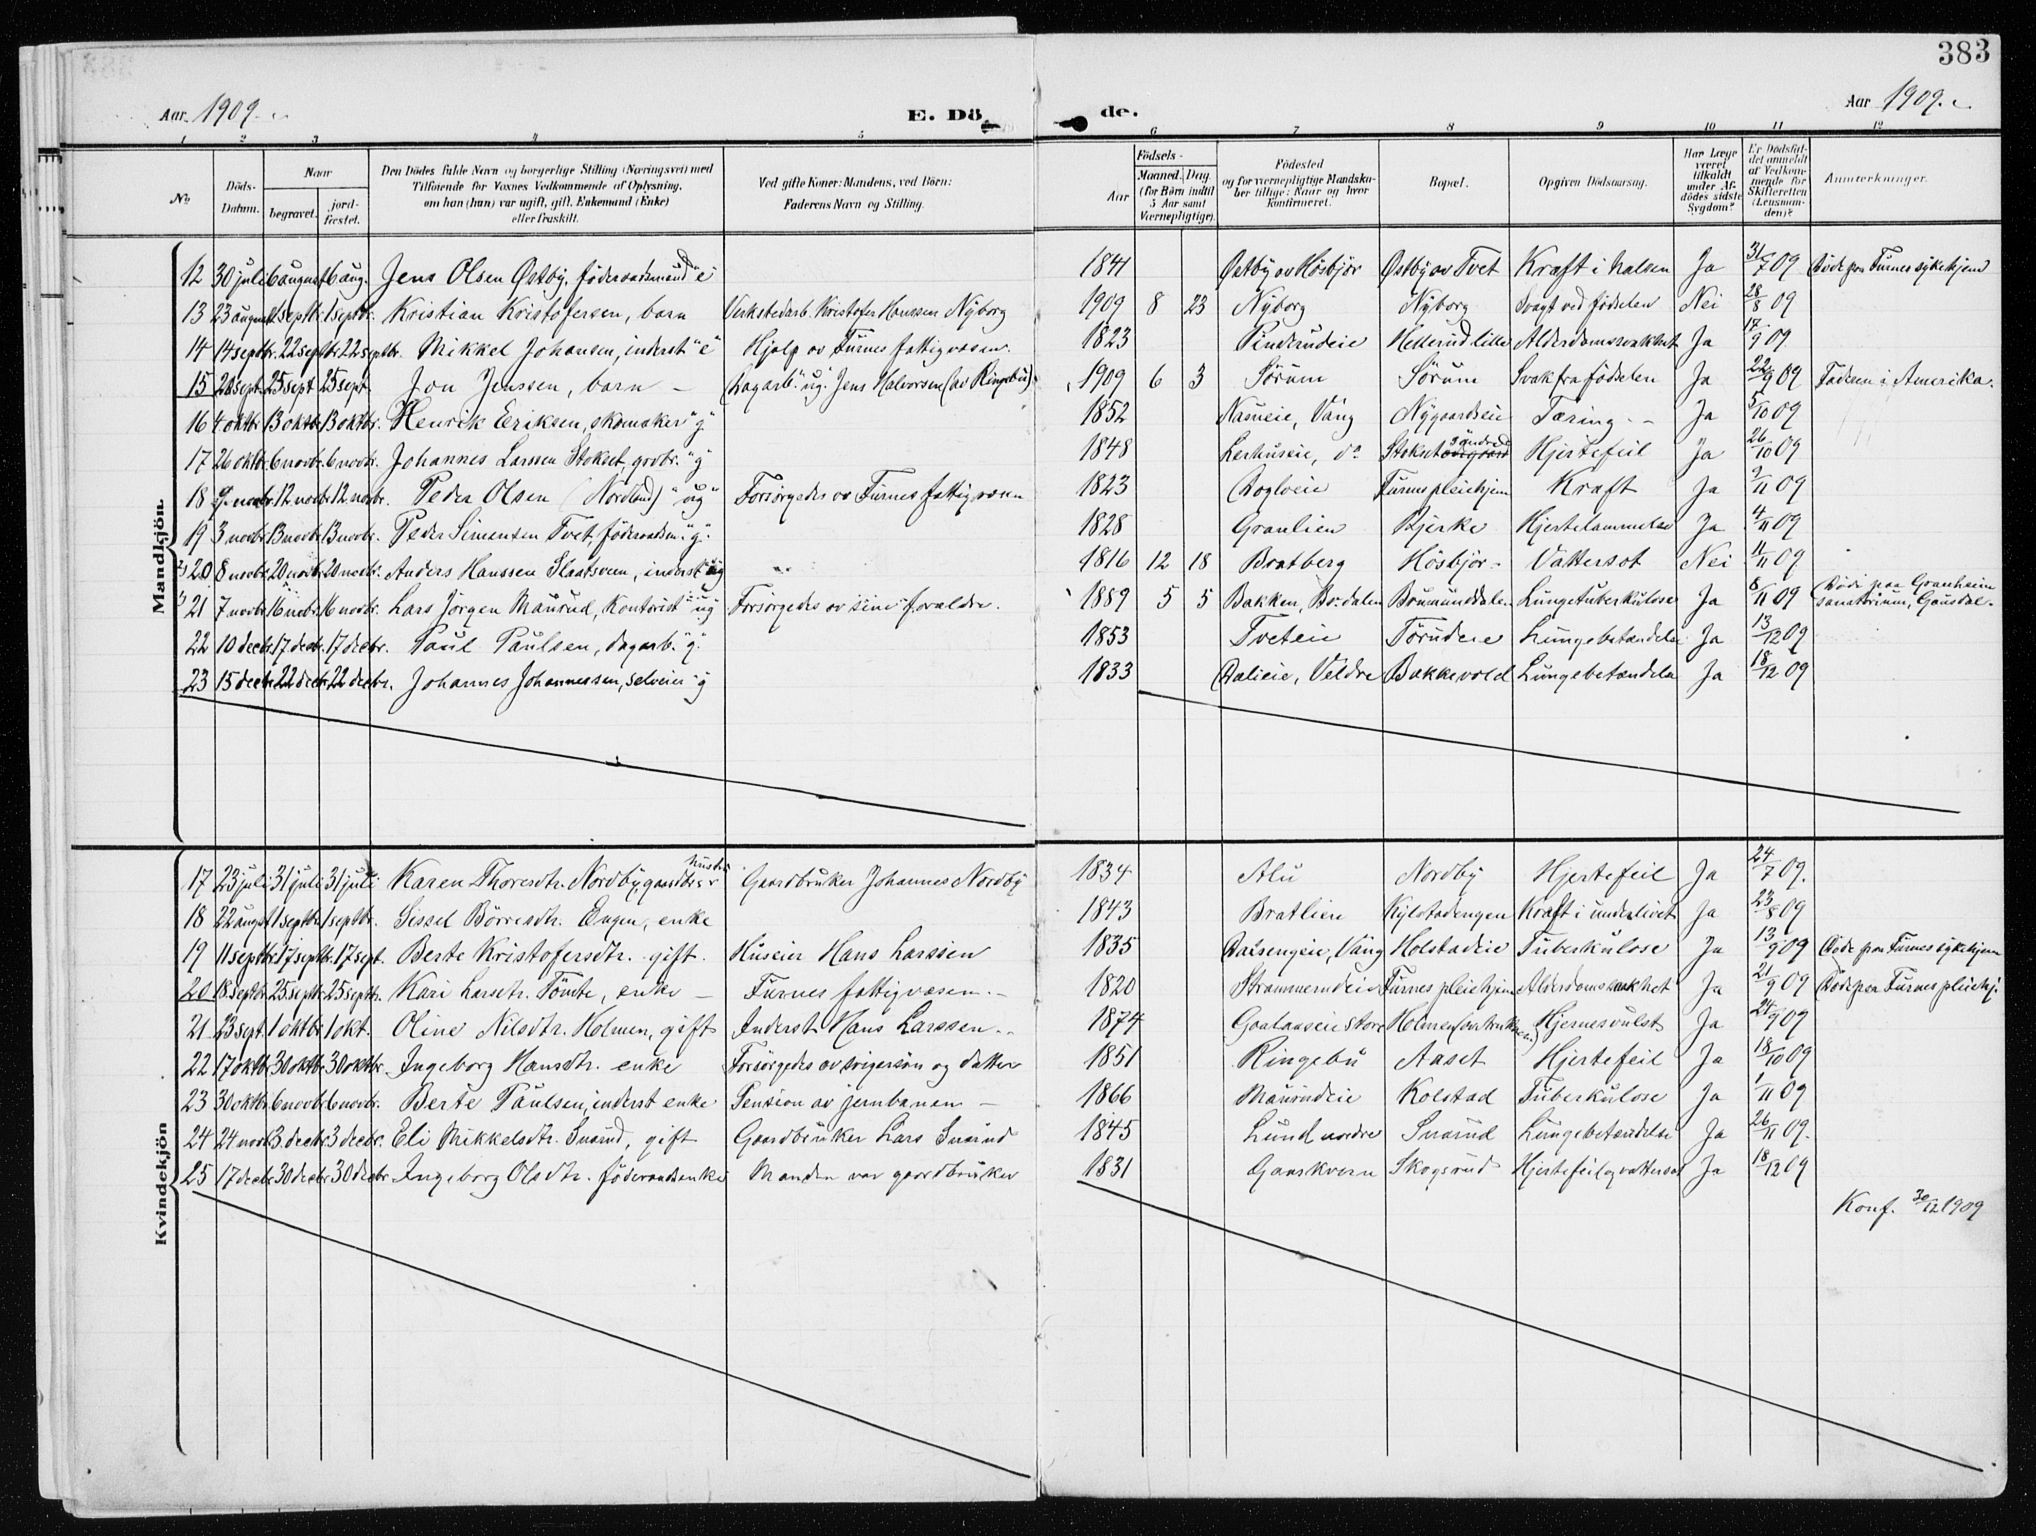 383
Aar 1909. E. Dö de. Aar 1909.
1 2 3 4 5 6 7 8 9 10 11 12
No Döds-Datum. Naar begravet. jordfæstet. Den Dödes fulde Navn og borgerlige Stilling (Næringsvei) med Tilföiende for Voxnes Vedkommende af Oplysning, om han (hun) var ugift, gift, Enkemand (Enke) eller fraskilt. Ved gifte Koner: Mandens, ved Börn: Faderens Navn og Stilling. Födsels- Aar Maaned. Dag. (for Börn indtil 5 Aar samt Værnepligtige). Födested og for værnepligtige Mandskaber tillige: Naar og hvor konfirmeret. Bopæl. Opgiven Dödsaarsag. Har Læge været tilkaldt under Afdödes sidste Sygdom? Er Dödsfaldet anmeldt af Vedkommende for Skifteretten (Lensmanden)? Anmerkninger.
Mandkjön.
12 30 juli 6 august 6 aug. Jens Olsen Østby, föderaadsmand "e" 1841 Østby av Hösbjör Østby av Tvet Kræft i halsen Ja 31/7 09 Døde paa Furnes sykehjem
13 23 august 1 septbr. 1 septbr. Kristian Kristofersen, barn Verkstedarb. Kristofer Hanssen Nyborg 1909 8 23 Nyborg Nyborg Svagt ved fødselen Nei 28/8 09
14 14 septbr. 22 septbr. 22 septbr. Mikkel Johansen, inderst "e" Hjælp av Furnes fattigvæsen. 1823 Pinderudeie Hellerud lille Alderdomssvakhet Ja 17/9 09
15 20 sept. 25 sept 25 sept. Jon Jenssen, barn – Dagarb. "ug." Jens Halvorsen (av Ringebu) 1909 6 3 Sörum Sörum Svak fra födselen Ja 22/9 09 Faderen i Amerika.
16 4 oktbr. 13 oktbr. 13 oktbr. Henrik Eriksen, skomaker "g." 1852 Næsieie, Vang Nygaardseie Tæring – Ja 5/10 09
17 26 oktbr. 6 novbr. 6 novbr. Johannes Larssen Stokset, grdbr. "g" 1848 Lerhuseie, do Stokset söndre Hjertefeil Ja 26/10 09
18 2. novbr. 12 novbr. 12 novbr. Peder Olsen (Nordlund) "ug" Forsørgedes av Furnes fattigvæsen 1823 Dogloeie Furnes pleiehjem Kræft Ja 2/11 09
19 3 novbr. 13 novbr. 13 novbr. Peder Simensen Tvet, föderaadsm. "g." 1828 Granlien Bjerke Hjertelammelse Ja 4/11 09
20 8 novbr. 20 novbr. 20 novbr. Anders Hanssen Slaatsveen, inderst "ug" 1816 12 18 Bratberg Hösbjör Vattersot Nei 11/11 09
21 7 novbr. 16 novbr. 16 novbr. Lars Jörgen Maurud, Kontorist "ug" Forsørgedes av sine forældre. 1889 5 5 Bakken, Br.dalen Brumunddalen Lungetuberkulose Ja 8/11 09 Døde paa Granheim sanatorium, Gausdal.
22 10 decbr. 17 decbr. 17 decbr. Paul Paulsen, dagarb. "g." 1853 Tveteie Törudeie Lungebetændelse Ja 13/12 09
23 15 decbr. 22 decbr. 22 decbr. Johannes Johannessen, selveier "g" 1833 Dalieie, Veldre Bakkevold Lungebetændelse Ja 18/12 09
Kvindekjön
17 23 juli 31 juli 31 juli Karen Thoresdtr. Nordby, gaardbr. hustru Gaardbruker Johannes Nordby 1834 Alu Nordby Hjertefeil Ja 24/7 09.
18 22 augst 1 septbr. 1 septbr. Sissel Börresdtr. Engen, enke 1843 Bratlien Kylstadengen Kræft i underlivet Ja 23/8 09
19 11 septbr. 17 septbr. 17 sept. Berte Kristofersdtr. gift. Huseier Hans Larssen 1835 Dalsengeie, Vang Holstadeie Tuberkulose Ja 13/9 09 Døde paa Furnes sykehjem
20 18 septbr. 25 septbr. 25 septbr. Kari Larsdtr. Tömte, enke – Furnes fattigvæsen. – 1820 Strammerudeie Furnes pleiehjem Alderdomssvakhet Ja 21/9 09 Døde paa Furnes pleiehj.
21 23 sept. 1 oktbr. 1 okt. Oline Nilsdtr. Holmen, gift Inderst Hans Larssen. 1874 Gaalaaseie store Holmen Hjernesvulst Ja 24/9 09
22 17 oktbr. 30 oktbr. 30 oktbr. Ingeborg Hansdtr. enke Forsørgedes av svigersön og datter 1851 Ringebu Aaset Hjertefeil Ja 18/10 09
23 30 oktbr. 6 novbr. 6 novbr. Berte Paulsen, inderst enke Pension av jernbanen – 1866 Maurudeie Kolstad Tuberkulose Ja 1/11 09
24 24 novbr. 3. decbr. 3 decbr. Eli Mikkelsdtr. Snarud, gift Gaardbruker Lars Snarud 1845 Lund nordre Snarud Lungebetændelse Ja 26/11 09.
25 17 decbr. 30 decbr. 30 decbr. Ingeborg Olsdtr. föderaadsenke Manden var gaardbruker 1831 Gaaskvern Skogsrud Hjertefeil og vattersot Ja 18/12 09
Konf. 30/12 1909